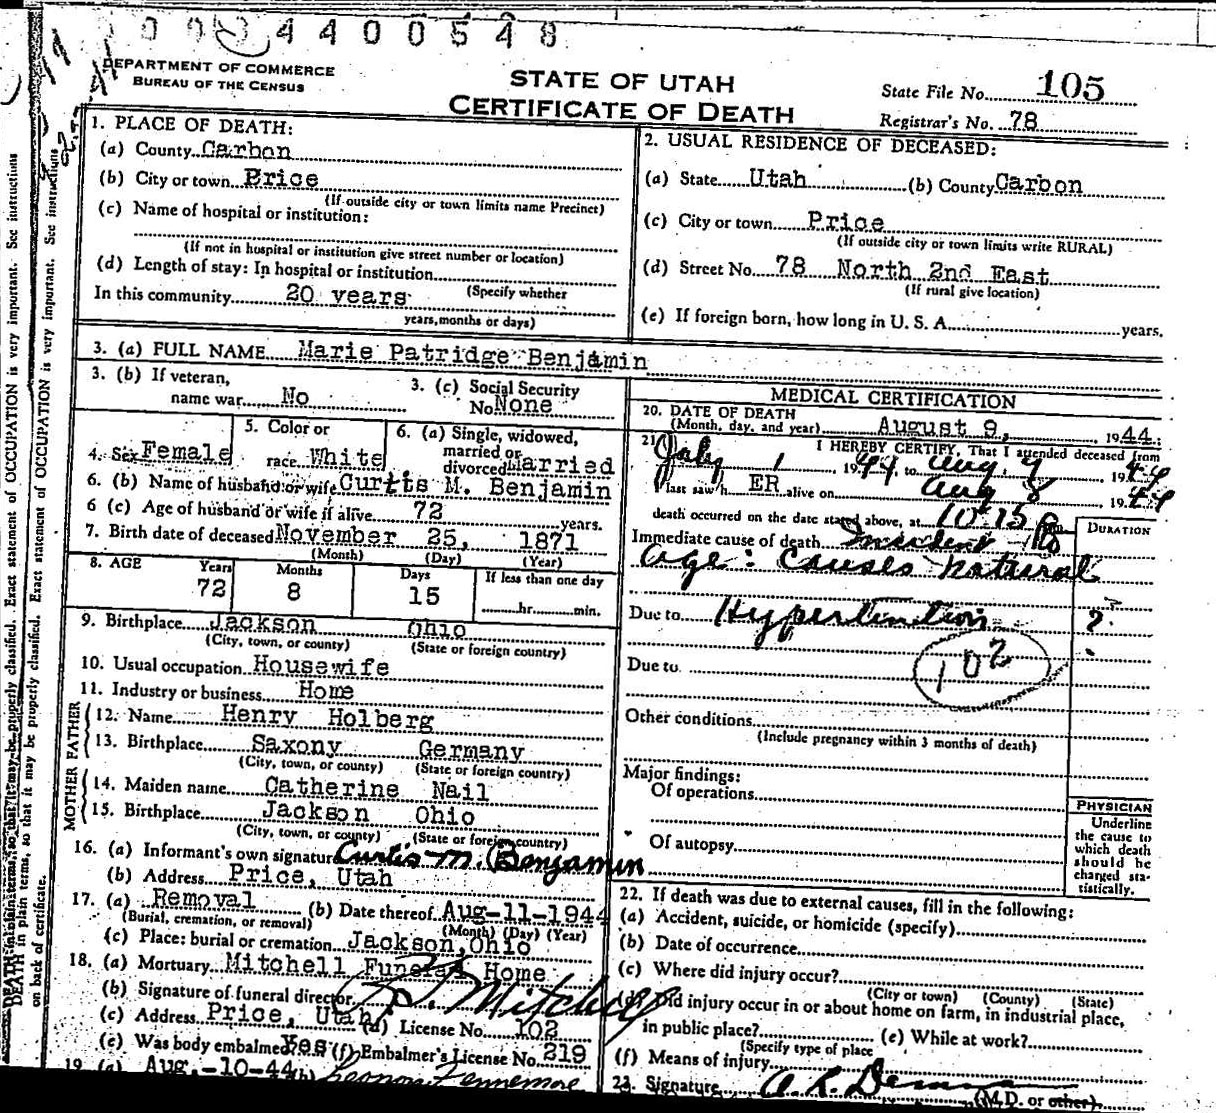 4 4 0 0 5 4 8
DEPARTMENT OF COMMERCE
BUREAU OF THE CENSUS
STATE OF UTAH
CERTIFICATE OF DEATH
State File No. 105
Registrar's No. 78
1. PLACE OF DEATH:
(a) County Carbon
(b) City or town Price
(If outside city or town limits name Precinct)
(c) Name of hospital or institution:
(If not in hospital or institution give street number or location)
(d) Length of stay: In hospital or institution
(Specify whether
In this community 20 years
years, months or days)
2. USUAL RESIDENCE OF DECEASED:
(a) State Utah (b) County Carbon
(c) City or town Price
(If outside city or town limits write RURAL)
(d) Street No. 78 North 2nd East
(If rural give location)
(e) If foreign born, how long in U. S. A. years.
3. (a) FULL NAME Marie Patridge Benjamin
3. (b) If veteran,
name war No
3. (c) Social Security
No None
4. Sex Female
5. Color or
race White
6. (a) Single, widowed,
married or
divorced Married
6. (b) Name of husband or wife Curtis M. Benjamin
6 (c) Age of husband or wife if alive 72 years.
7. Birth date of deceased November 25, 1871
(Month) (Day) (Year)
8. AGE Years Months Days If less than one day
72 8 15 hr. min.
9. Birthplace Jackson Ohio
(City, town, or county) (State or foreign country)
10. Usual occupation Housewife
11. Industry or business Home
FATHER
12. Name Henry Holberg
13. Birthplace Saxony Germany
(City, town, or county) (State or foreign country)
MOTHER
14. Maiden name Catherine Nail
15. Birthplace Jackson Ohio
(City, town, or county) (State or foreign country)
16. (a) Informant's own signature Curtis M. Benjamin
(b) Address Price, Utah
17. (a) Removal (b) Date thereof Aug-11-1944
(Burial, cremation, or removal) (Month) (Day) (Year)
(c) Place: burial or cremation Jackson, Ohio
18. (a) Mortuary Mitchell Funeral Home
(b) Signature of funeral director Mitchell
(c) Address Price, Utah (d) License No. 102
(e) Was body embalmed? Yes (f) Embalmer's License No. 219
19. (a) Aug.-10-44 (b)
MEDICAL CERTIFICATION
20. DATE OF DEATH
(Month, day, and year) August 9, 1944
21. I HEREBY CERTIFY, That I attended deceased from
July 1 1944 to Aug. 9 1944
I last saw h ER alive on Aug 8 1944
death occurred on the date stated above, at 10:15 P
DURATION
Immediate cause of death Incident to
Age: Causes Natural
Due to Hypertention ?
102
Due to
Other conditions
(Include pregnancy within 3 months of death)
Major findings:
Of operations
Of autopsy
PHYSICIAN
Underline
the cause to
which death
should be
charged sta-
tistically.
22. If death was due to external causes, fill in the following:
(a) Accident, suicide, or homicide (specify)
(b) Date of occurrence
(c) Where did injury occur?
(City or town) (County) (State)
Did injury occur in or about home on farm, in industrial place,
in public place? (e) While at work?
(Specify type of place
(f) Means of injury
23. Signature
(M.D. or other)
DEATH in plain terms, so that it may be properly classified. Exact statement of OCCUPATION is very important. See instructions
on back of certificate.